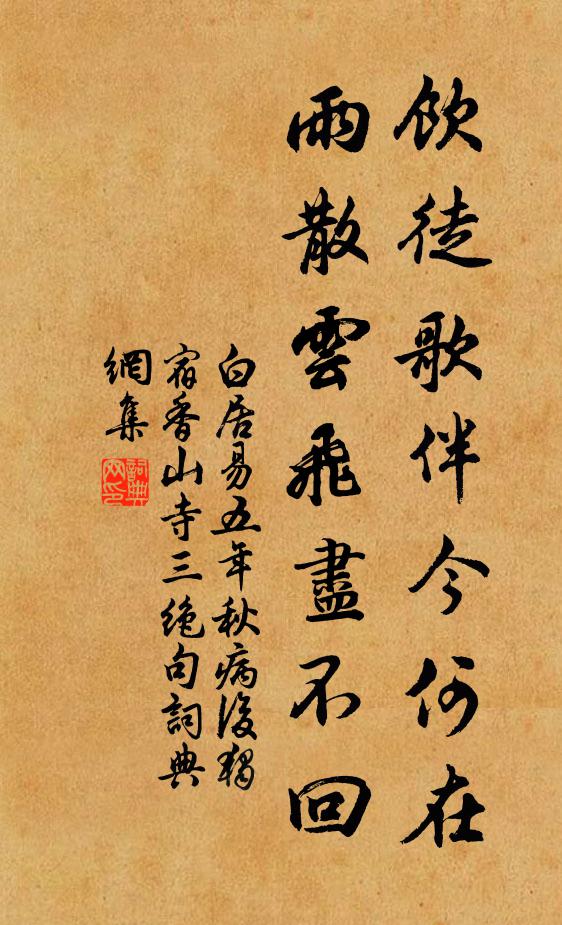 飲徒歌伴今何在
雨散雲飛盡不回
白居易五年秋病後獨
宿香山寺三絕句詞典
網集
詞典
网印